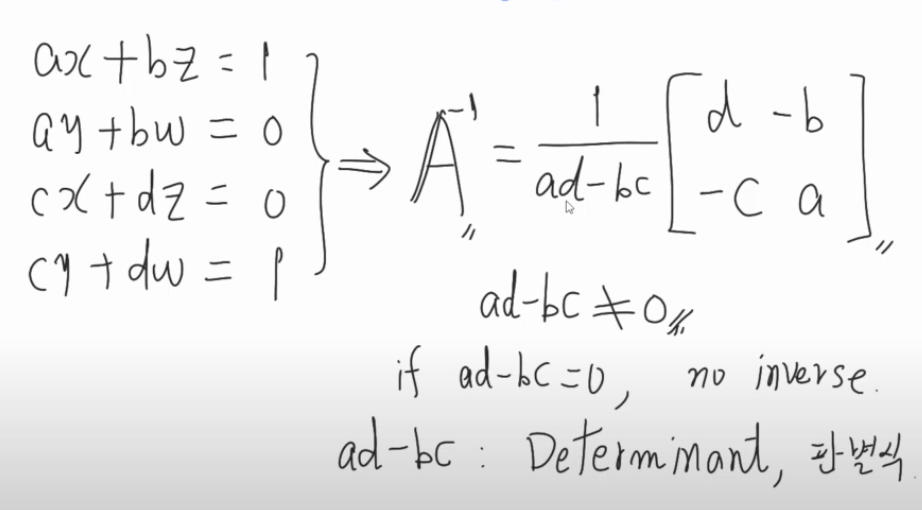 ax + bz = 1
ay + bw = 0
cx + dz = 0
cy + dw = 1
⇒ A⁻¹ = 1/(ad-bc) [d -b; -c a]
ad-bc ≠ 0
if ad-bc=0, no inverse.
ad-bc : Determinant, 판별식.